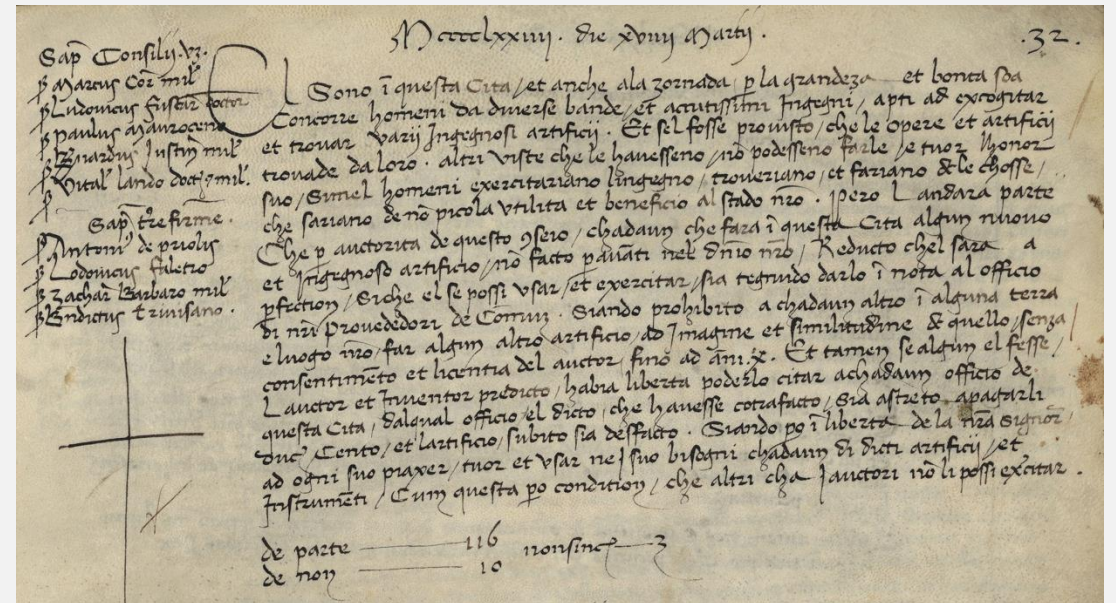 Mcccclxxiiii. die xviiii Martii.
.32.
Sap̄ Consilii.vz.
ꝑ Marcus Cor̄ mil̄
ꝑ Ludovicus doctor
ꝑ paulus Mauroceno
ꝑ Bnardus Justin mil̄
ꝑ Vital lando doct. mil̄.
Sap̄ tr̄e firme.
ꝑ Antoni' de priolis
ꝑ Lodovicus faletro
ꝑ zachar Barbaro mil̄
ꝑ Bndictus trivisano.
El Sono ī questa Cita, et anche ala zornada, ꝑ la grandeza et bonta soa
Concorre homeni da diverse bande, et acutissimi Ingegni, apti ad excogitar
et trovar varii Ingegnosi artificii. Et sel fosse provisto, che le opere et artificii
trovade da loro. altri viste che le havesseno, nō podesseno farle, e tuor lhonor
suo, Simel homeni exercitariano lingegno, troveriano, et fariano de le chosse,
che sariano de nō picola utilita et beneficio al stado nr̄o. Pero Landara parte
Che ꝑ auctorita de questo ꝯseio, chadaun che fara ī questa Cita algun nuovo
et Ingegnoso artificio, nō facto ꝑavāti nel dn̄io nr̄o, Reducto chel sara a
ꝑfection, Siche el se possi usar, et exercitar, sia tegnudo darlo ī nota al officio
di nr̄i Provededori de Comun. Siando prohibito a chadaun altro ī alguna terra
e luogo nr̄o, far algun altro artificio, ad Imagine et similitudine de quello, senza
consentimēto et licentia del auctor, fino ad ani .x. Et tamen se algun el fesse,
Lauctor et Inventor predicto, habia liberta poderlo citar a chadaun officio de
questa Cita, dal qual officio, el dicto, che havesse cōtrafacto, Sia astreto apagarli
duc' Cento, et lartificio, subito sia desfacto. Siando ꝑo ī liberta de la nr̄a Signor̄
ad ogni suo piaxer, tuor et usar nei suo bisogni chadaun di dicti artificii, et
Instrumēti, Cum questa ꝑo condition, che altri cha I auctori nō li possi exc̄itar.
de parte 116 nonsinc̄ 3
de non 10